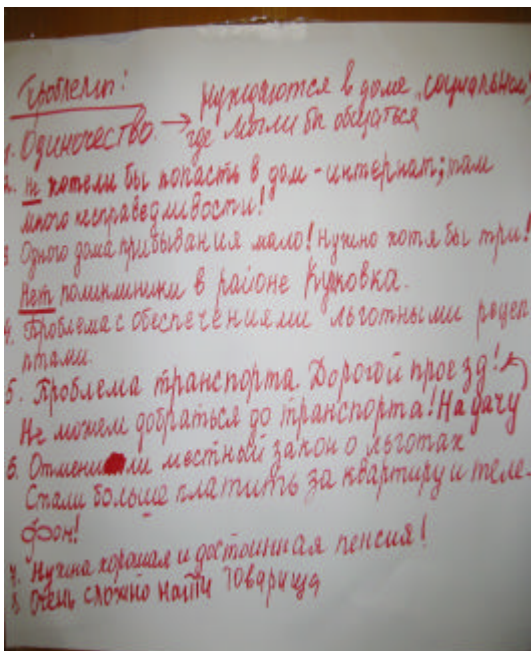 Проблемы:
1. Одиночество. → нуждаются в доме „социальном,
где могли бы общаться
2. Не хотели бы попасть в дом-интернат; там
много несправедливости!
3 Одного дома прибывания мало! Нужно хотя бы три!
Нет поликлиники в районе Кужовка.
4. Проблема с обеспечениями льготными рецеп
птами.
5. Проблема транспорта. Дорогой проезд!
Не можем добраться до транспорта! На дачу
6. Отменили местный закон о льготах
Стали больше платить за квартиру и теле-
фон!
7. Нужна хорошая и достоинная пенсия!
8. Очень сложно найти товарища